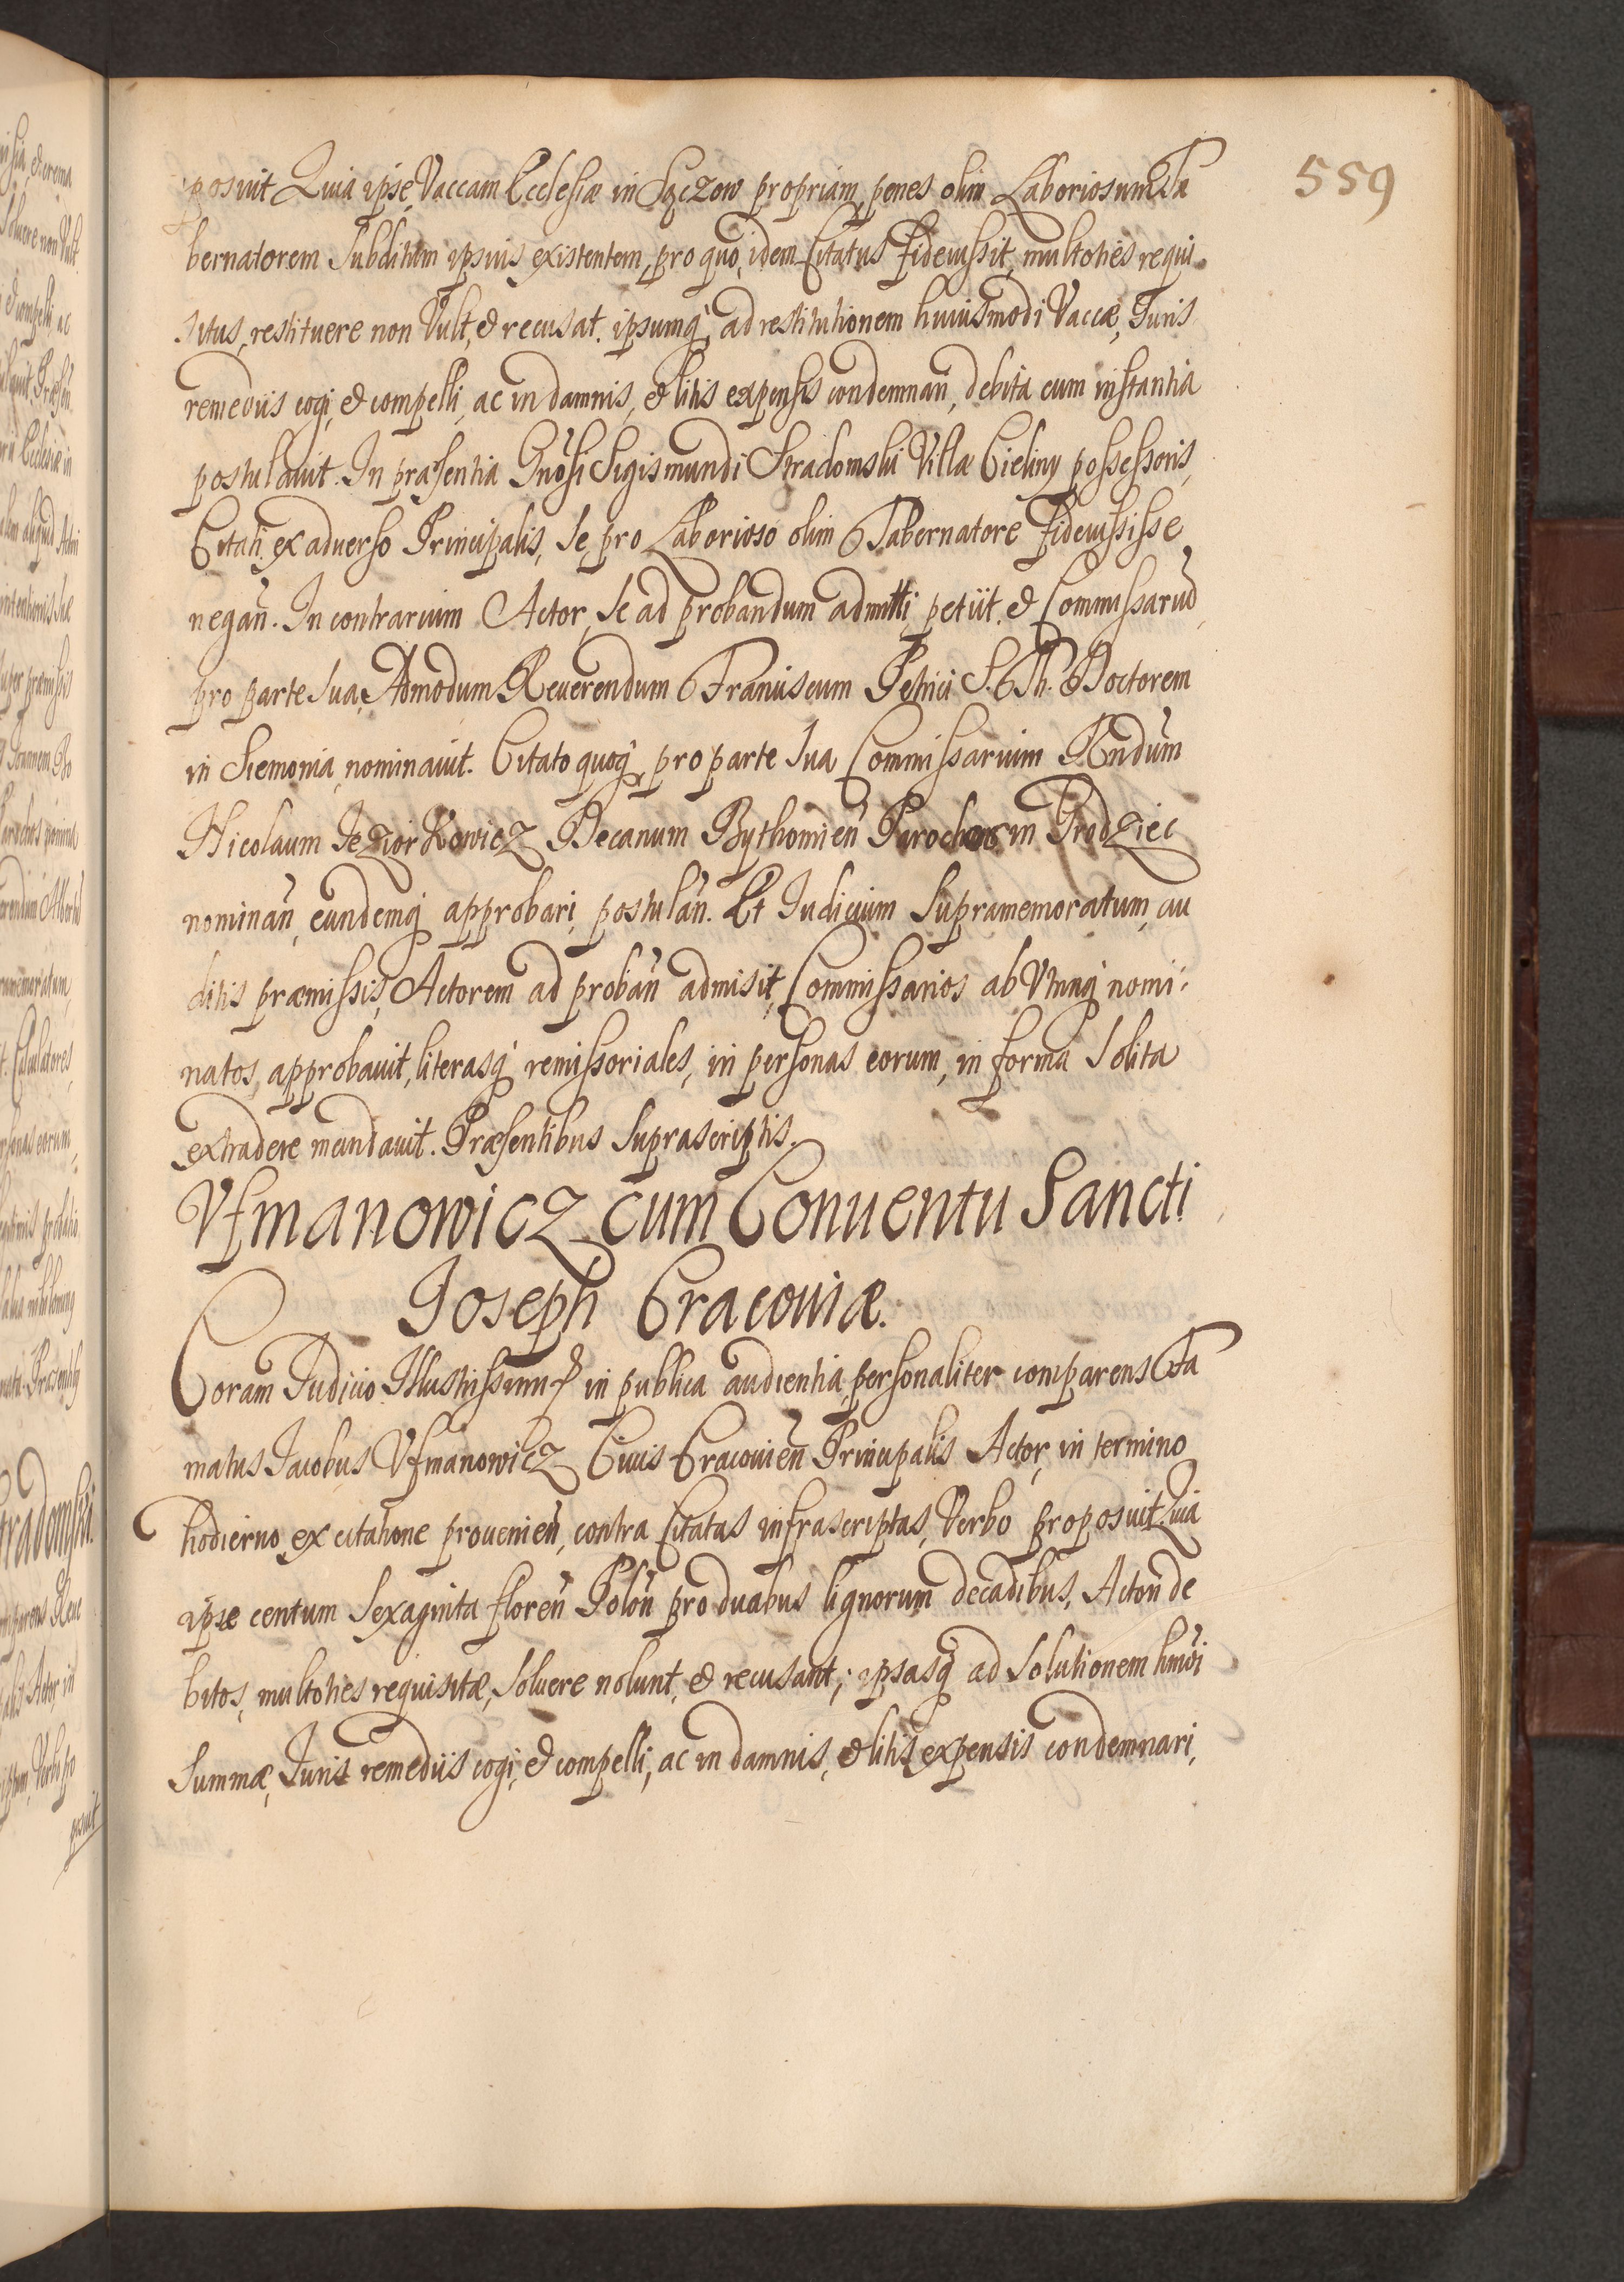 559
posuit Quia ipse, Vaccam Ecclesiæ in Sączow propriam, penes olim Laboriosum Ta
bernatorem Subditum ipsius existentem, pro quo, idem Citatus fideiussit, multoties requi
situs, restituere non Vult, & recusat. ipsumq; ad restitutionem huiusmodi Vaccæ, Iuris
remediis cogi, & compelli, ac in damnis, & litis expensis condemnan̄, debita cum instantia
postulauit. In præsentia Gn̄osi Sigismundi Stradomski Villæ Cieliny possessoris,
Citati, ex aduerso Principalis, se, pro Laborioso olim Tabernatore fideiussisse
negan̄. In contrarium Actor, se ad probandum admitti, petiit. & Commissariū
pro parte sua, Admodum Reuerendum Franciscum Petrici S. Th. Doctorem
in Siemonia, nominauit. Citato quoq;, pro parte sua Commissarium Rndum
Nicolaum Jeziorkowicz Decanum Bythomien̄ Parochum in Grodziec
nominan̄, eundemq; approbari, postulan̄. Et Iudicium Supramemoratum, au
ditis præmissis, Actorem ad proban̄ admisit, Commissarios ab Vtrinq; nomi-
natos, approbauit, literasq; remissoriales, in personas eorum, in forma Solita
extradere mandauit. Præsentibus Suprascriptis.
Vfmanowicz cum Conuentu Sancti
Joseph Cracouiæ.
Coram Iudicio Illustrissimi &. in publica audientia, personaliter comparens Fa
matus Jacobus Vfmanowicz Ciuis Cracouien̄ Principalis Actor, in termino
hodierno, ex citatione prouenien̄, contra Citatas infrascriptas, Verbo proposuit Quia
ipsæ centum Sexaginta floren̄ Polon̄ pro duabus lignorum decadibus, Actori de
bitos, multoties requisitæ, soluere nolunt, & recusant; ipsasq; ad Solutionem hmōi
Summæ, Iuris remediis cogi, & compelli, ac in damnis, & litis expensis condemnari,